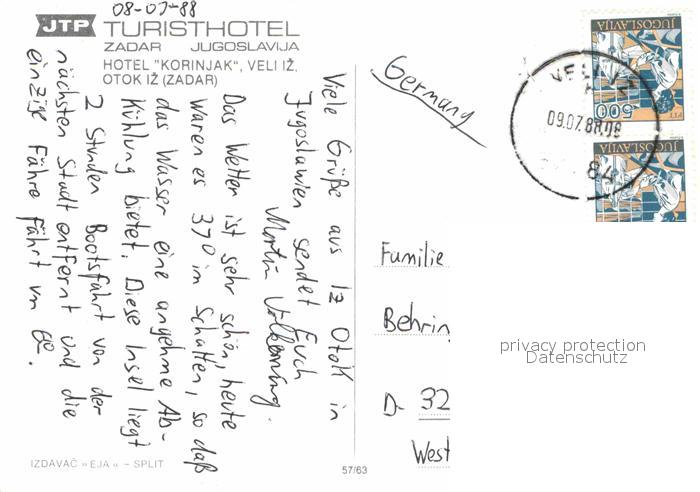 08-07-88
JTP TURISTHOTEL
ZADAR JUGOSLAVIJA
HOTEL "KORINJAK", VELI IŽ,
OTOK IŽ (ZADAR)
Viele Grüße aus Iz Otok in
Jugoslawien sendet Euch
Martin
Das Wetter ist sehr schön, heute
waren es 37° im Schatten, so daß
das Wasser eine angenehme Ab-
kühlung bietet. Diese Insel liegt
2 Stunden Bootsfahrt von der
nächsten Stadt entfernt und die
einzige Fähre fährt um 6⁰⁰.
Germany
JUGOSLAVIJA
500
PTT
JUGOSLAVIJA
VELI IŽ
09.07.88.08
Familie
Behrin
D- 32
West
privacy protection
Datenschutz
IZDAVAČ »EJA« – SPLIT
57/63